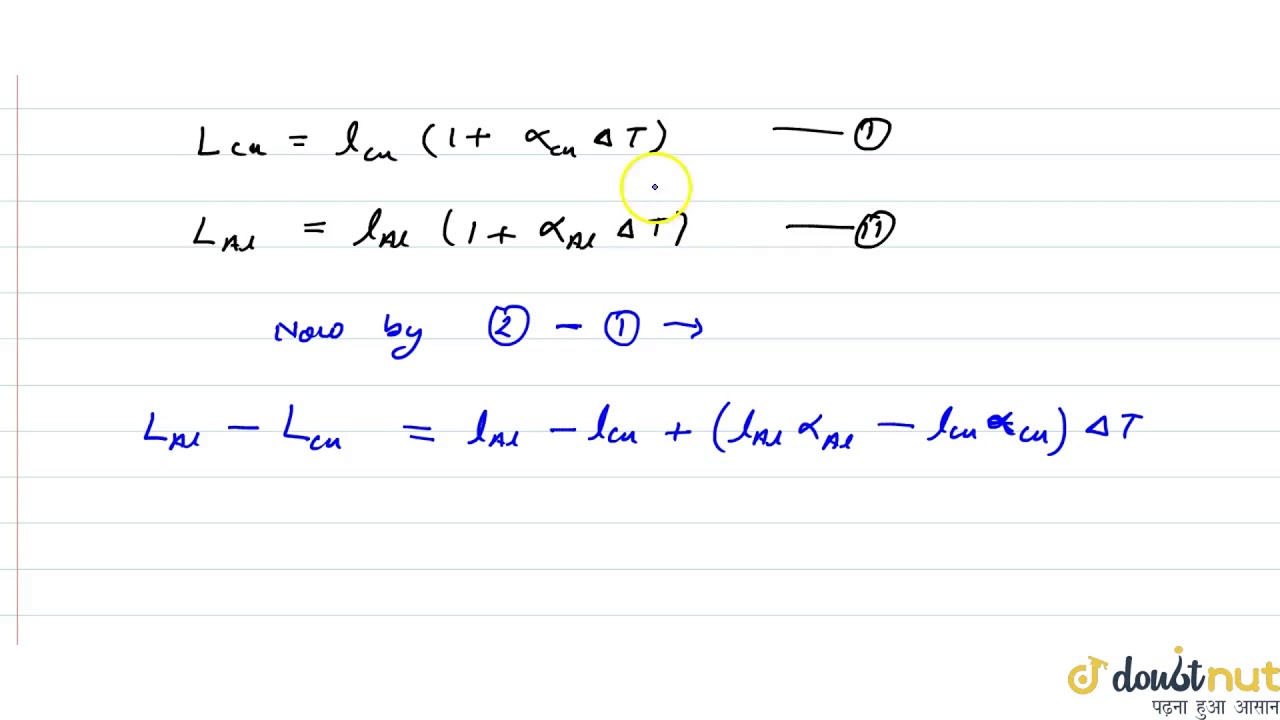 L_Cu = l_Cu (1 + α_Cu ΔT) —— ①
L_Al = l_Al (1 + α_Al ΔT) —— ⑪
Now by ② - ① →
L_Al - L_Cu = l_Al - l_Cu + (l_Al α_Al - l_Cu α_Cu) ΔT
doubtnut
पढ़ना हुआ आसान